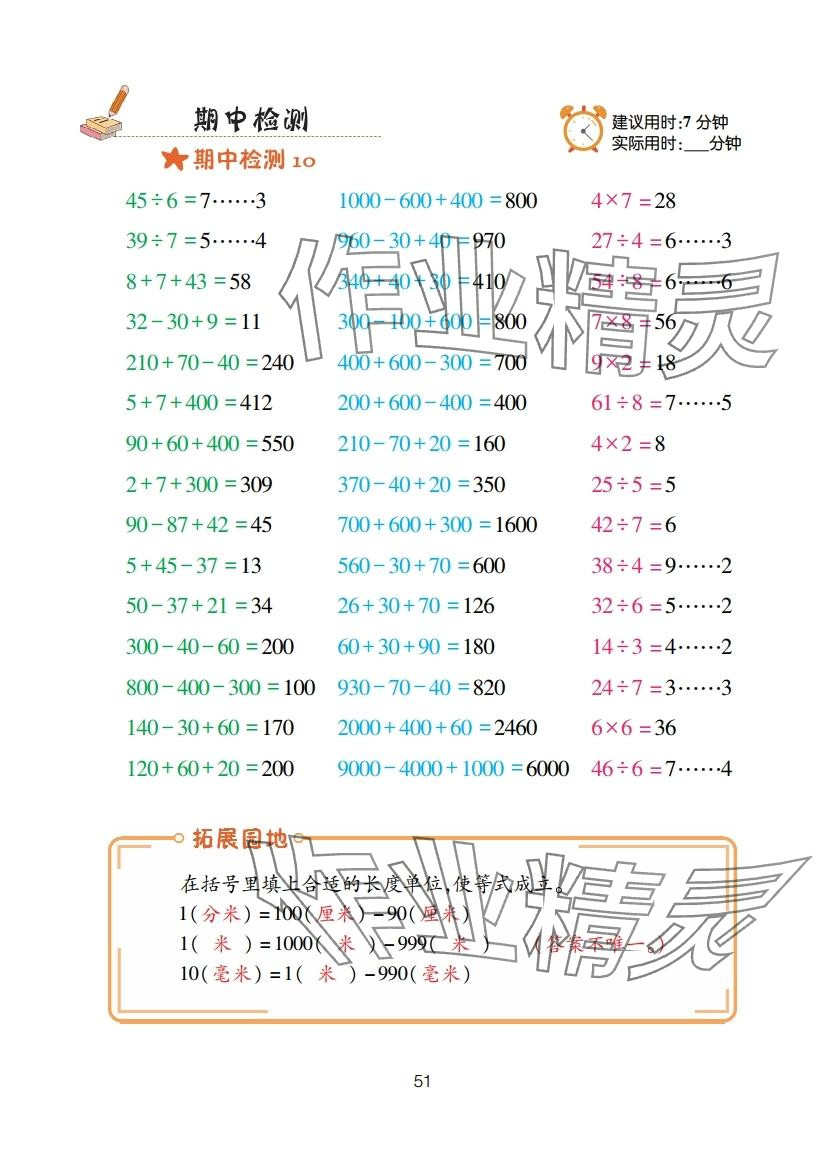 期中检测
建议用时:7 分钟
实际用时:___分钟
期中检测 10
45÷6=7……3 1000-600+400=800 4×7=28
39÷7=5……4 960-30+40=970 27÷4=6……3
8+7+43=58 340+40+30=410 54÷8=6……6
32-30+9=11 300-100+600=800 7×8=56
210+70-40=240 400+600-300=700 9×2=18
5+7+400=412 200+600-400=400 61÷8=7……5
90+60+400=550 210-70+20=160 4×2=8
2+7+300=309 370-40+20=350 25÷5=5
90-87+42=45 700+600+300=1600 42÷7=6
5+45-37=13 560-30+70=600 38÷4=9……2
50-37+21=34 26+30+70=126 32÷6=5……2
300-40-60=200 60+30+90=180 14÷3=4……2
800-400-300=100 930-70-40=820 24÷7=3……3
140-30+60=170 2000+400+60=2460 6×6=36
120+60+20=200 9000-4000+1000=6000 46÷6=7……4
作业精灵
拓展园地
在括号里填上合适的长度单位,使等式成立。
1(分米)=100(厘米)-90(厘米)
1( 米 )=1000( 米 )-999( 米 ) (答案不唯一。)
10(毫米)=1( 米 )-990(毫米)
作业精灵
51